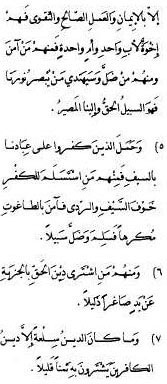 إلا بالإيمان والعمل الصالح والتقوى فهم
إخوة لأب واحد وأم واحدة فمنهم من آمن
ومنهم من ضل وسيهدي من يبصر نورها
فهو السبيل الحق وإلينا المصير
٥) وحمل الذين كفروا على عبادنا
بالسيف فمنهم من استسلم للكفر
خوف السيف والردى فآمن بالطاغوت
مكرها فسلم وضل سبيلا
٦) ومنهم من اشترى دين الحق بالجزية
عن يد صاغرا ذليلا
٧) وما كان الدين سلعة إلا دين
الكافرين يشترون به ثمنا قليلا